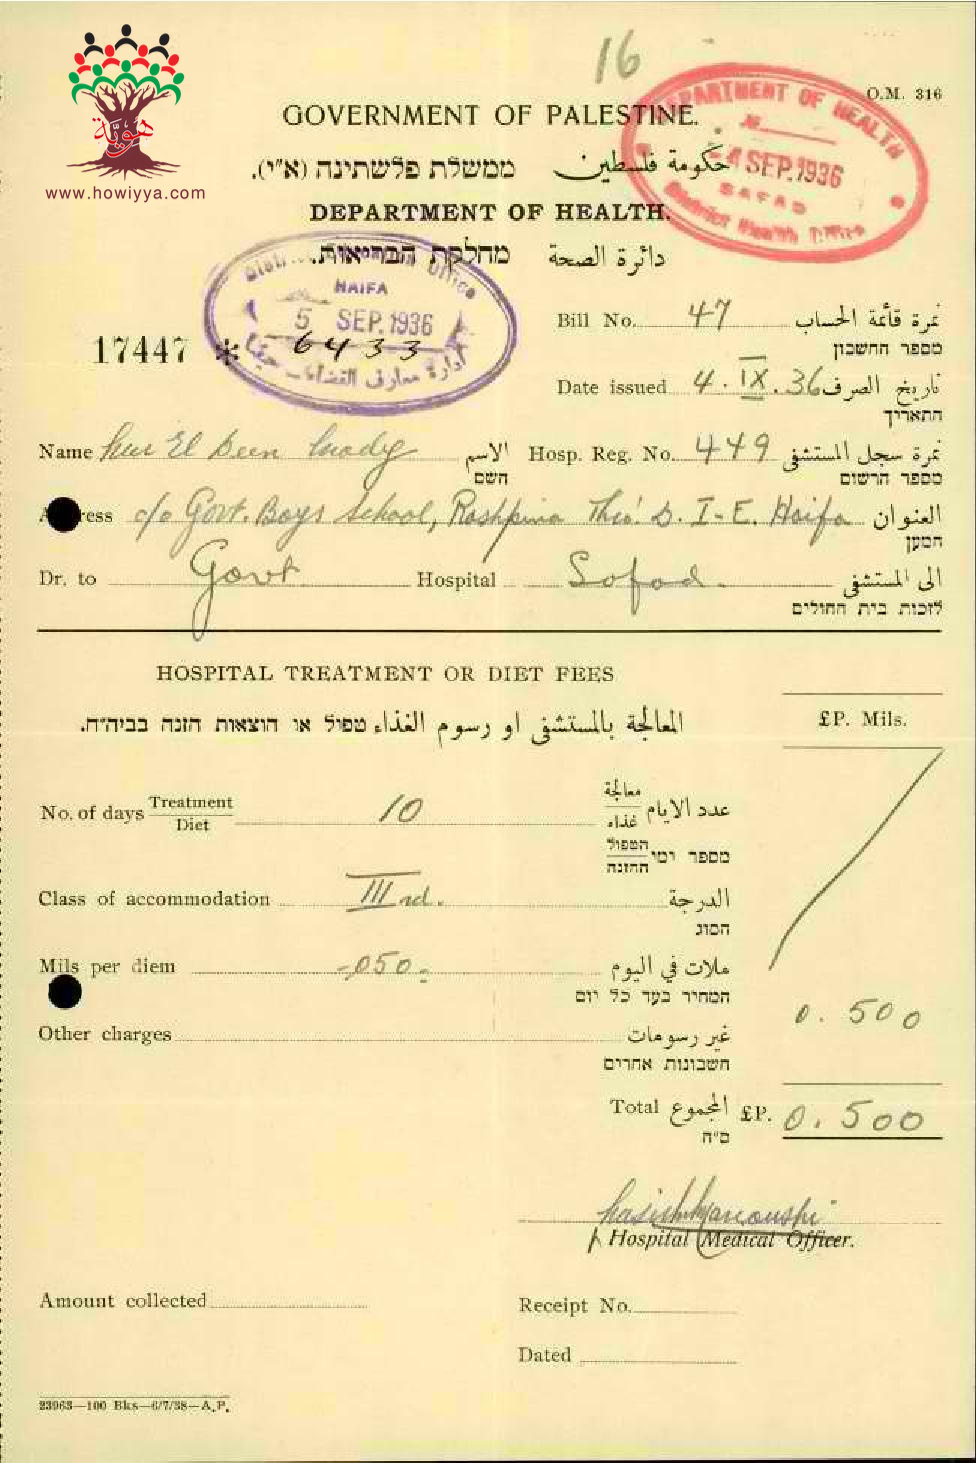 هويّة
www.howiyya.com
16
O.M. 316
GOVERNMENT OF PALESTINE.
ממשלת פלשתינה (א״י). حكومة فلسطين
DEPARTMENT OF HEALTH.
מחלקת הבריאות. دائرة الصحة
DEPARTMENT OF HEALTH
No.
- 4 SEP. 1936
SAFAD
District Health Office
Office
HAIFA
5 SEP. 1936
6433
ادارة معارف القضاءات حيفا
17447 *
Bill No. 47 نمرة قائمة الحساب
מספר החשבון
Date issued 4. IX. 36 تاريخ الصرف
התאריך
Name El Deen الاسم Hosp. Reg. No. 449 نمرة سجل المستشفى
השם מספר הרשום
Address c/o Govt. Boys School, Roshpina Thro' D. I-E. Haifa العنوان
המען
Dr. to Govt Hospital Safad. الى المستشفى
לזכות בית החולים
HOSPITAL TREATMENT OR DIET FEES
המעالجة بالمستشفى او رسوم الغذاء טפול או הוצאות הזנה בביה״ח.
£P. Mils.
No. of days Treatment 10 عدد الايام معالجة
Diet غذاء
מספר ימי הטפול
ההזנה
Class of accommodation III rd. الدرجة
הסוג
Mils per diem -.050- ملات في اليوم
המחיר בעד כל יום
0.500
Other charges غير رسومات
חשבונות אחרים
Total المجموع £P. 0.500
ס״ה
Hospital Medical Officer.
Amount collected
Receipt No.
Dated
23963—100 Bks—6/7/38—A.P.